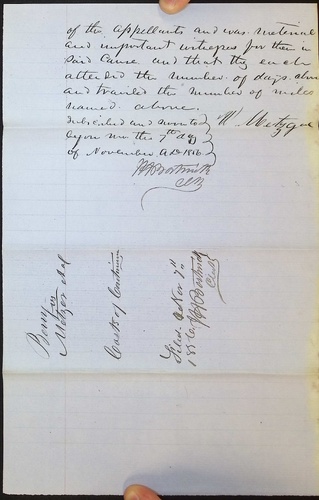 of the appellants and was material
and important witnesses for them in
said Cause and that they each
attended the number of days above
and traveled the number of miles
named above.
Subscribed and sworned
before me this 7th day
of November AD 1856
W Metzger
Clk
Berry
vs
Metzger et al
Costs of Continu
Filed Nov 7th
1856
Clerk